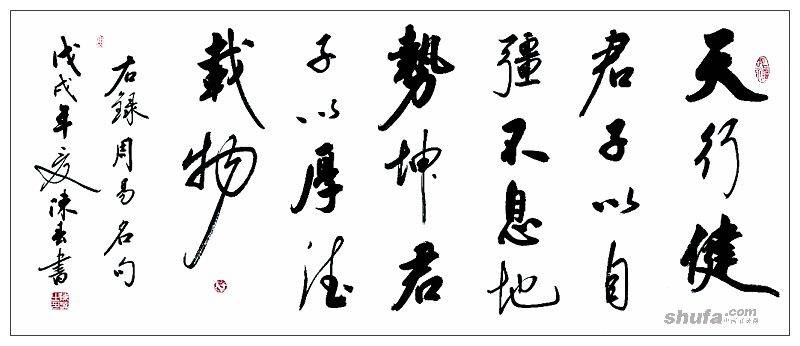 天行健
君子以自
彊不息地
勢坤君
子以厚德
載物
右錄周易名句
戊戌年夏陳書
shufa.com